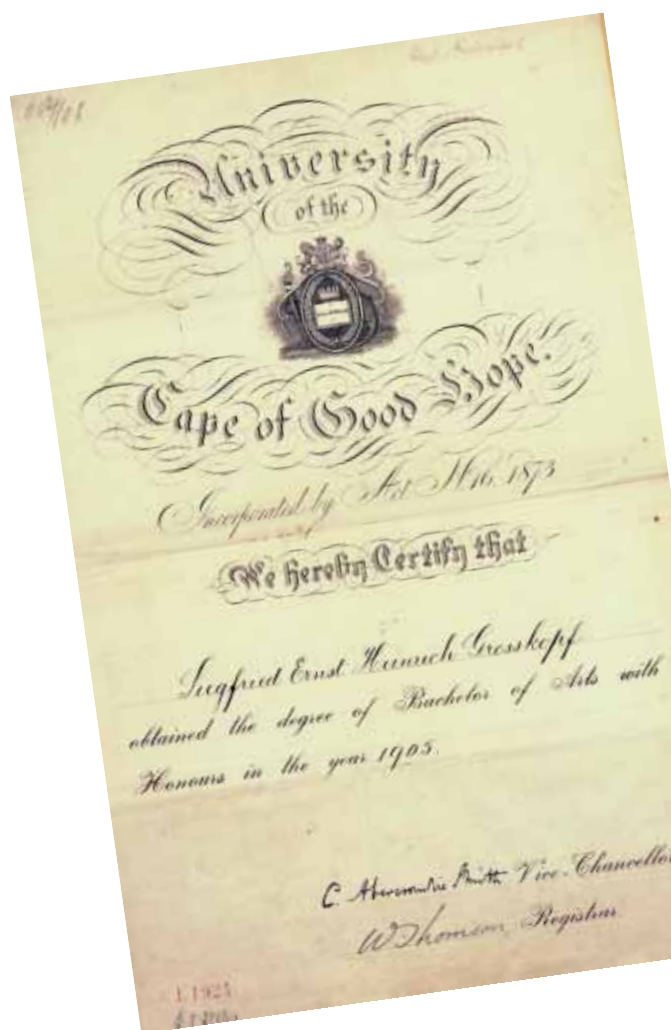 University
of the
Cape of Good Hope.
Incorporated by Act No 16, 1873
We hereby Certify that
Siegfried Ernst Heinrich Grosskopf
obtained the degree of Bachelor of Arts with
Honours in the year 1905.
C. Abercrombie Smith Vice-Chancellor
W Thomson, Registrar
1 1925